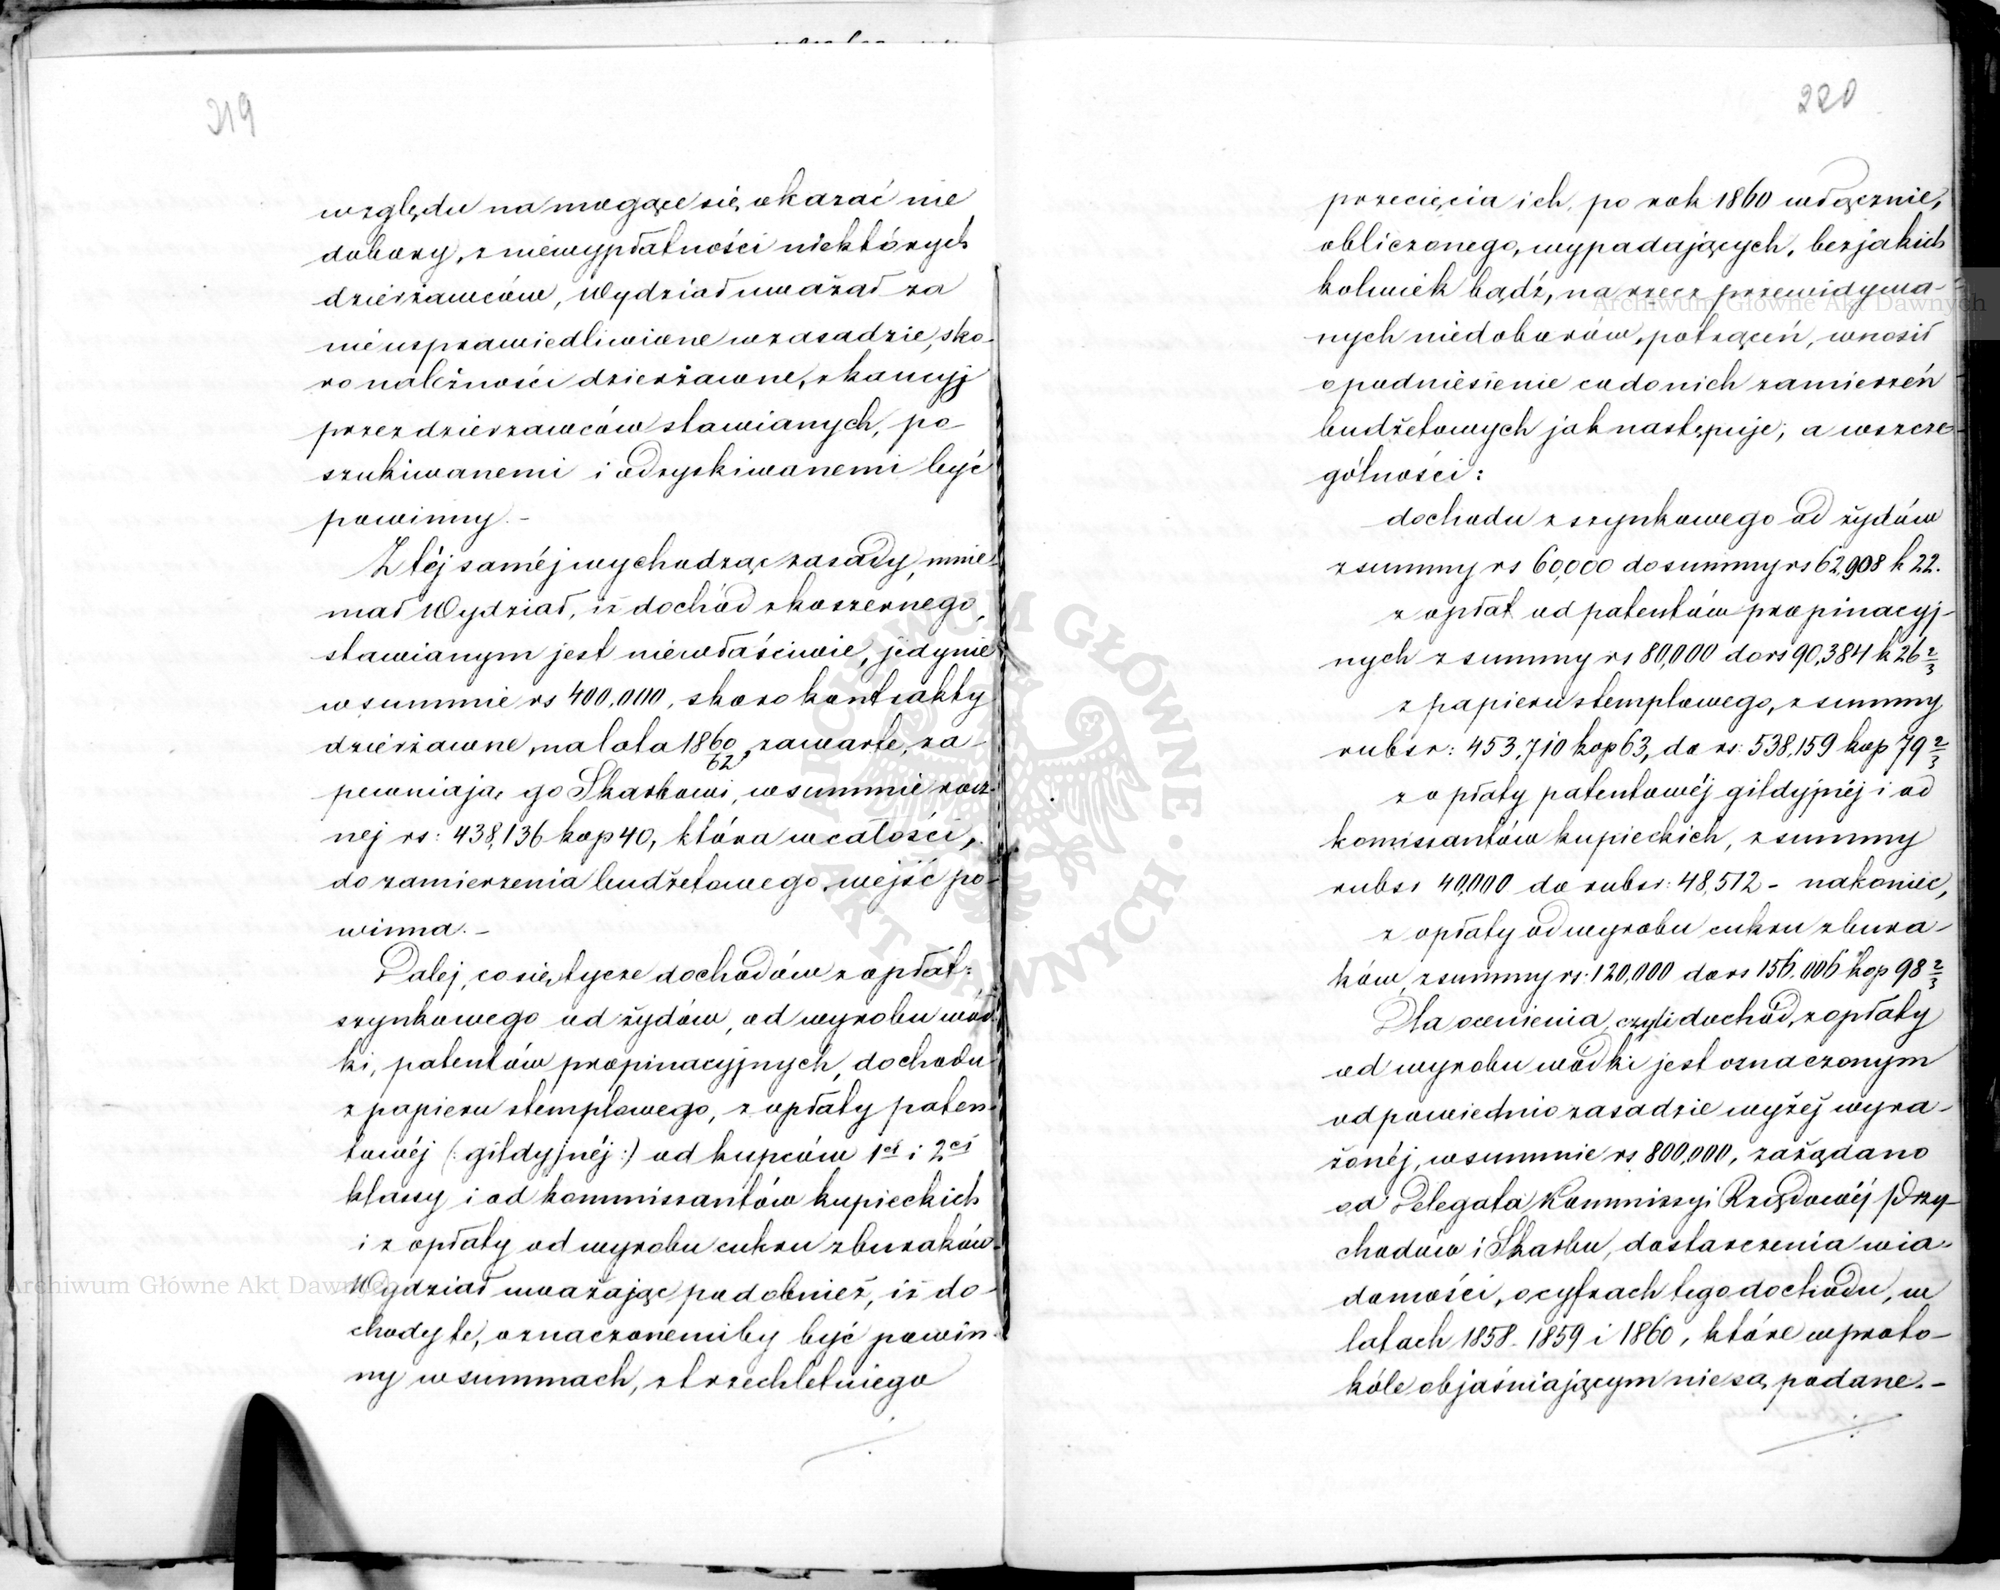 219
względu na mogące się okazać nie
dobory, z niewypłatności niektórych
dzierżawców, Wydział uważał za
nieusprawiedliwione w zasadzie, sko-
ro należności dzierżawne, z kaucyj
przez dzierzawców stawianych, po-
szukiwanemi i odzyskiwanemi być
powinny.-
Z téj saméj wychodząc zasady, mnie-
mał Wydział, iż dochód z koszernego,
stawianym jest niewłaściwie, jedynie
w summie rs 400,000, skoro kontrakty
dzierżawne, na lata 1860/62, zawarte, za-
pewniają go Skarbowi, w summie rocz-
nej rs: 438,136 kop 40, która w całości,
do zamierzenia budżetowego, wejść po-
winna.-
Dalej, co się tycze dochodów z opłat:
szynkowego od żydów, od wyrobu wód-
ki, patentów propinacyjnych, dochodu
z papieru stemplowego, z opłaty paten-
towéj (: gildyjnéj :) od kupców 1éj i 2éj
klassy i od kommissantów kupieckich
i z opłaty od wyrobu cukru z buraków-
Wydział uważając podobnież, iż do-
chody te, oznaczonemiby być powin-
ny w summach, z trzechletniego
220
przecięcia ich, po rok 1860 włącznie,
obliczonego, wypadających, bez jakich
kolwiek bądź, na rzecz przewidywa-
nych niedoborów, potrąceń, wnosił
o podniesienie co do nich zamierzeń
budżetowych jak następuje, a w szcze-
gólności:
dochodu z szynkowego od żydów
z summy rs 60,000 do summy rs 62,908 k 22.
z opłat od patentów propinacyj-
nych z summy rs 80,000 do rs 90,384 k 26 2/3
z papieru stemplowego, z summy
rubsr: 453,710 kop 63, do rs: 538,159 kop 79 2/3
z opłaty patentowéj gildyjnéj i od
komissantów kupieckich, z summy
rubsr 40,000 do rubsr: 48,512 - nakoniec,
z opłaty od wyrobu cukru z bura-
ków, z summy rs: 120,000 do rs 156,006 kop 98 2/3
Dla ocenienia, czyli dochód, z opłaty
od wyrobu wódki jest oznaczonym
odpowiednio zasadzie wyżej wyra-
żonéj, w summie rs 800,000, zażądano
od Delegata Kommissyi Rządowéj Przy-
chodów i Skarbu, dostarczenia wia-
domości, o cyfrach tego dochodu, w
latach 1858. 1859 i 1860, które w proto-
kóle objaśniającym nie są podane.-
Archiwum Główne Akt Dawnych
Archiwum Główne Akt Dawnych
ARCHIWUM GŁÓWNE AKT DAWNYCH